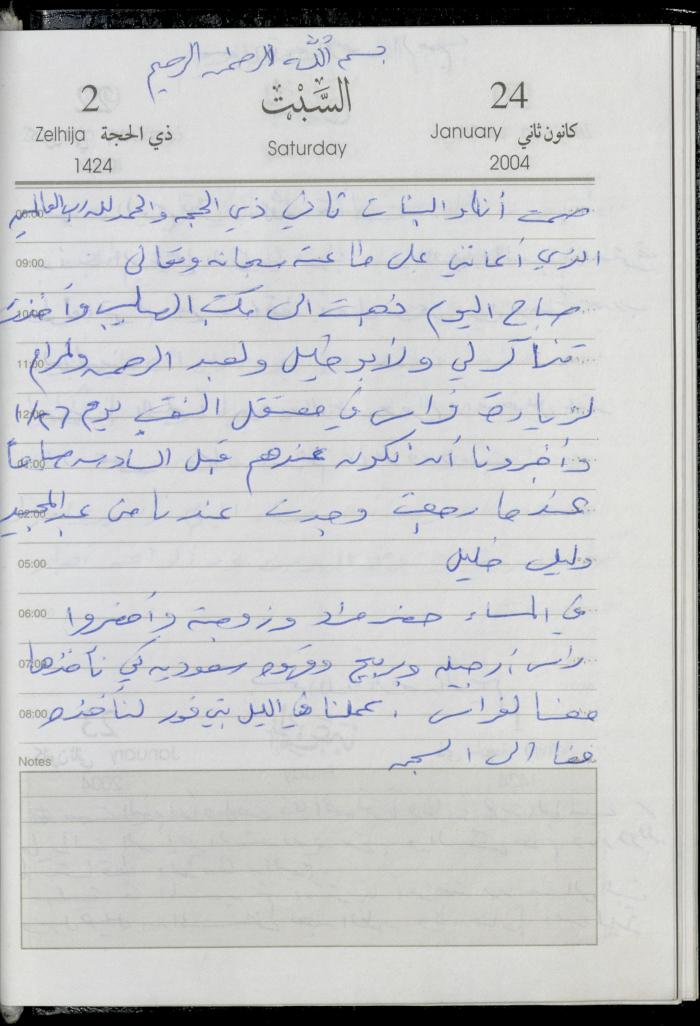 بسم الله الرحمن الرحيم
2 السَّبْت 24
Zelhija ذي الحجة Saturday January كانون ثاني
1424 2004
صمت أنا والبنات ثاني ذي الحجه والحمد لله رب العالمين
09:00 الذي أعانني على طاعته سبحانه وتعالى
صباح اليوم ذهبت الى مكتب الصليب وأخذت
11:00 تذاكر لي ولأبو خليل ولعبد الرحمن ولمرام
12:00 لزيارة فراس في معتقل النقب يوم
وأخبرونا أن نكون عندهم قبل السادسه صباحاً
02:00 عندما رجعت وجدت عندنا من عبد المجيد
05:00 خليل
06:00 في المساء حضر وزوجته وأحضروا
07:00 رأس أرجيله وبربيج وقهوه سعوديه كي نأخذها
08:00 معنا لفراس . عملنا في الليل بتي فور لنأخذه
معنا الى السجن
Notes